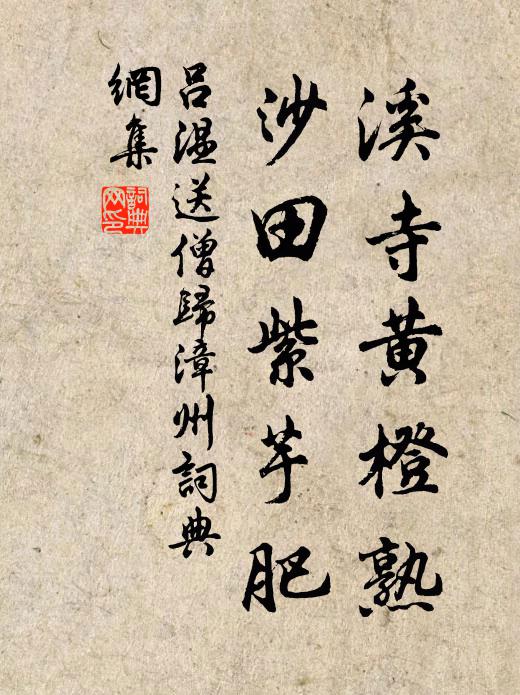 溪寺黄橙熟
沙田紫芋肥
吕温送僧歸漳州詞典
網集
詞典網印